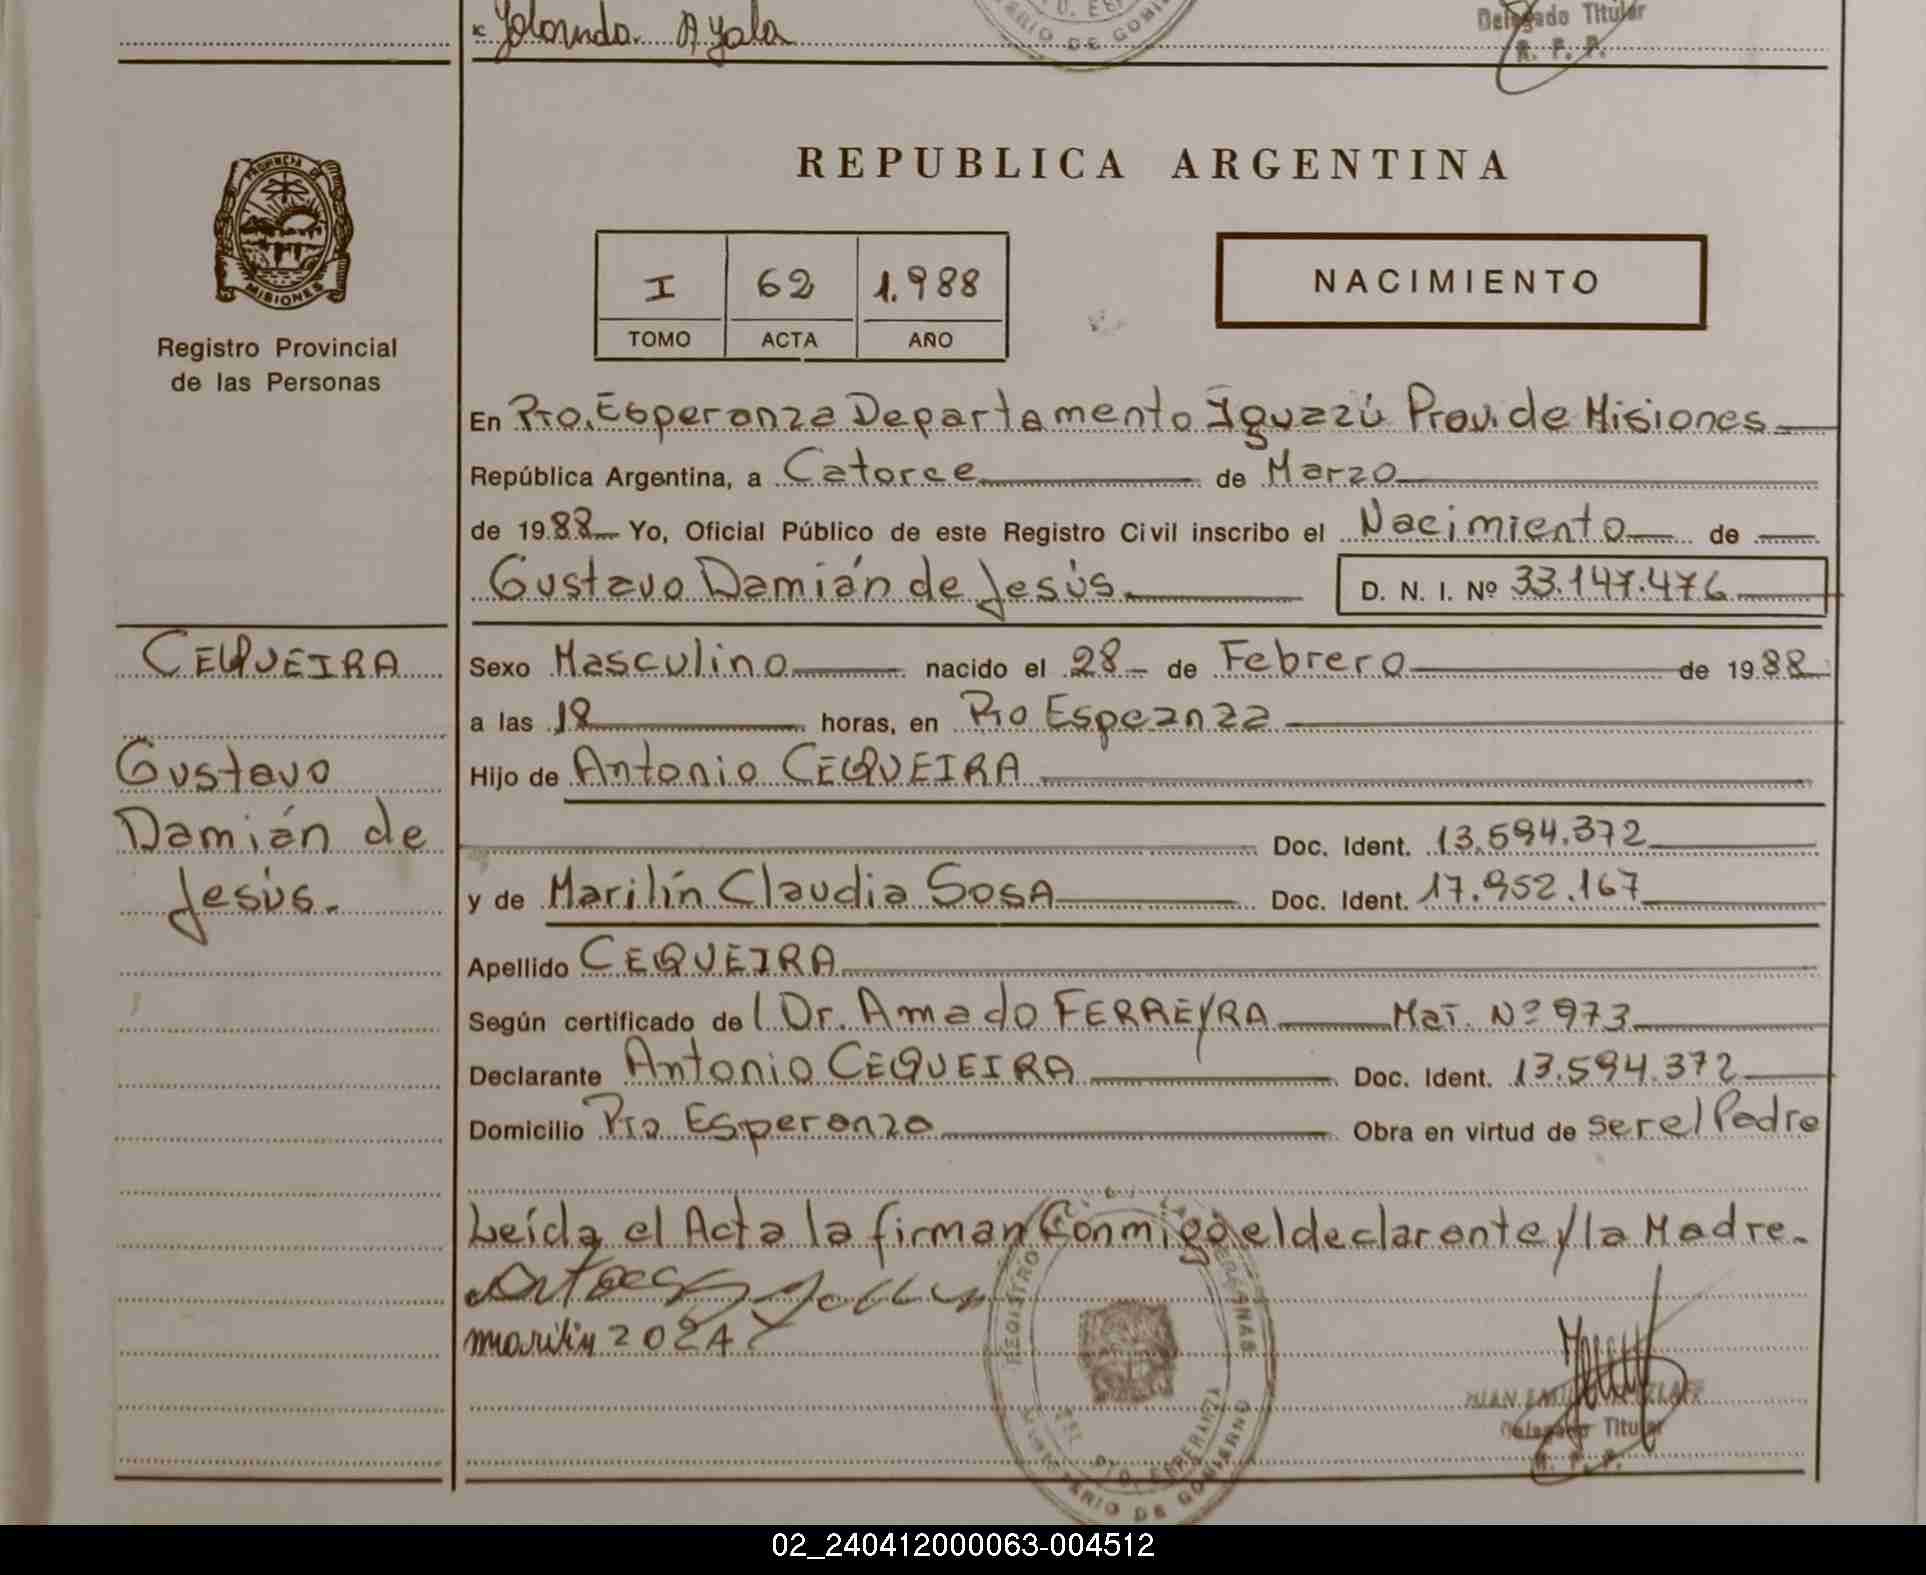 Yolanda Ayala
Delegado Titular
R. P. P.
PROVINCIA DE
MISIONES
Registro Provincial
de las Personas
REPUBLICA ARGENTINA
I 62 1.988
TOMO ACTA AÑO
NACIMIENTO
En Pto. Esperanza Departamento Iguazú Prov. de Misiones
República Argentina, a Catorce de Marzo
de 1988 Yo, Oficial Público de este Registro Civil inscribo el Nacimiento de
Gustavo Damián de Jesús D. N. I. Nº 33.147.476
CEQUEIRA
Gustavo
Damián de
Jesús.
Sexo Masculino nacido el 28 de Febrero de 1988
a las 18 horas, en Pto Espeanza
Hijo de Antonio CEQUEIRA
Doc. Ident. 13.594.372
y de Marilín Claudia SOSA Doc. Ident. 17.952.167
Apellido CEQUEIRA
Según certificado del Dr. Amado FERREYRA Mat. Nº 973
Declarante Antonio CEQUEIRA Doc. Ident. 13.594.372
Domicilio Pto Esperanza Obra en virtud de ser el Padre
Leída el Acta la firman Conmigo el declarante y la Madre.
REGISTRO PERSONAS
PTO. ESPERANZA
MINISTERIO DE GOBIERNO
Delegado Titular
R. P. P.
02_240412000063-004512